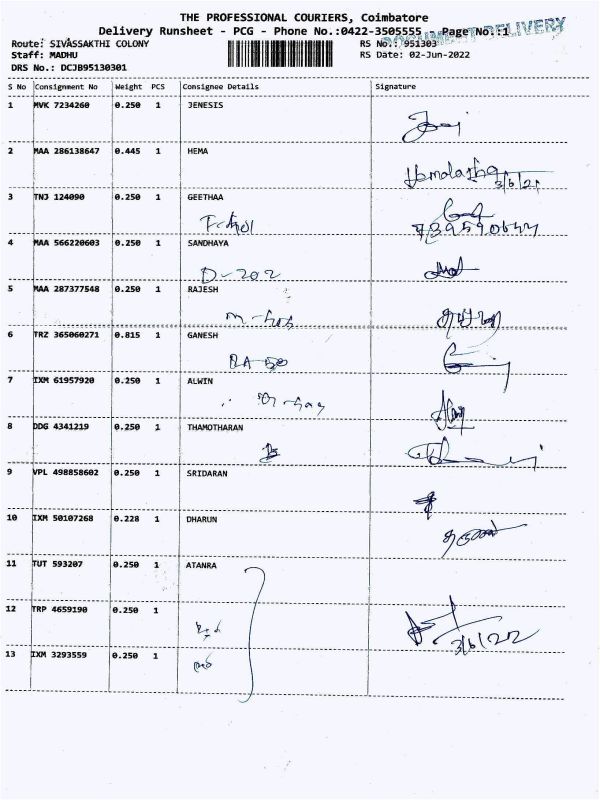 THE PROFESSIONAL COURIERS, Coimbatore
Delivery Runsheet - PCG - Phone No.:0422-3505555 Page No.:1
DOCUMENT DELIVERY
Route: SIVASSAKTHI COLONY RS No.: 951303
Staff: MADHU RS Date: 02-Jun-2022
DRS No.: DCJB95130301
S No Consignment No Weight PCS Consignee Details Signature
1 MVK 7234260 0.250 1 JENESIS
2 MAA 286138647 0.445 1 HEMA
3/6/22
3 TNJ 124090 0.250 1 GEETHAA
4 MAA 566220603 0.250 1 SANDHAYA
D-202
5 MAA 287377548 0.250 1 RAJESH
6 TRZ 365060271 0.815 1 GANESH
7 IXM 61957920 0.250 1 ALWIN
8 DDG 4341219 0.250 1 THAMOTHARAN
9 VPL 498858602 0.250 1 SRIDARAN
10 IXM 50107268 0.228 1 DHARUN
11 TUT 593207 0.250 1 ATANRA
12 TRP 4659190 0.250 1
3/6/22
13 IXM 3293559 0.250 1